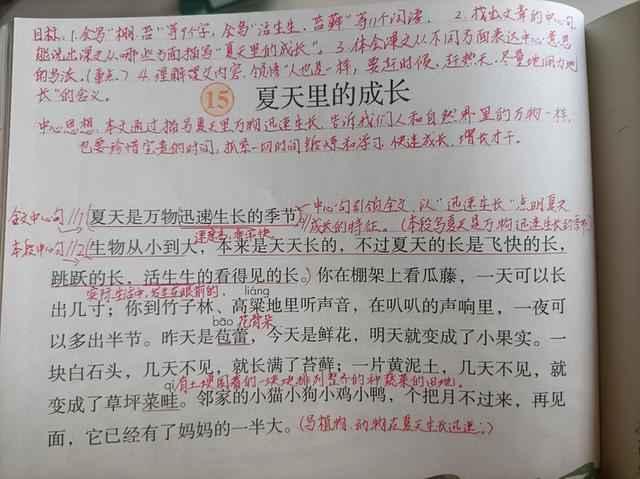 目标：1.会写“棚、苔”等9个字，会写“活生生、苔藓”等11个词语。 2.找出文章的中心句，
能说出课文从哪些方面描写“夏天里的成长”。3.体会课文从不同方面表达中心意思
的写法。(重点) 4.理解课文内容，领悟“人也是一样，要赶时候，赶热天，尽量地用力地
长”的含义。
15 夏天里的成长
中心思想：本文通过描写夏天里万物迅速生长，告诉我们人和自然界里的万物一样，
也要珍惜宝贵的时间，抓紧一切时间锻炼和学习，快速成长，增长才干。
全文中心句 //1 夏天是万物迅速生长的季节。
中心句引领全文，以“迅速生长”点明夏天
成长的特征。(本段写夏天是万物迅速生长的季节)
速度高，非常快
本段中心句 //2 生物从小到大，本来是天天长的，不过夏天的长是飞快的长，
跳跃的长，活生生的看得见的长。你在棚架上看瓜藤，一天可以长
实际生活中，发生在眼前的。
liáng
出几寸；你到竹子林、高粱地里听声音，在叭叭的声响里，一夜可
bāo 花骨朵
以多出半节。昨天是苞蕾，今天是鲜花，明天就变成了小果实。一
块白石头，几天不见，就长满了苔藓；一片黄泥土，几天不见，就
qí 有土埂围着的一块块排列整齐的种蔬菜的田地。
变成了草坪菜畦。邻家的小猫小狗小鸡小鸭，个把月不过来，再见
面，它已经有了妈妈的一半大。(写植物、动物在夏天生长迅速。)